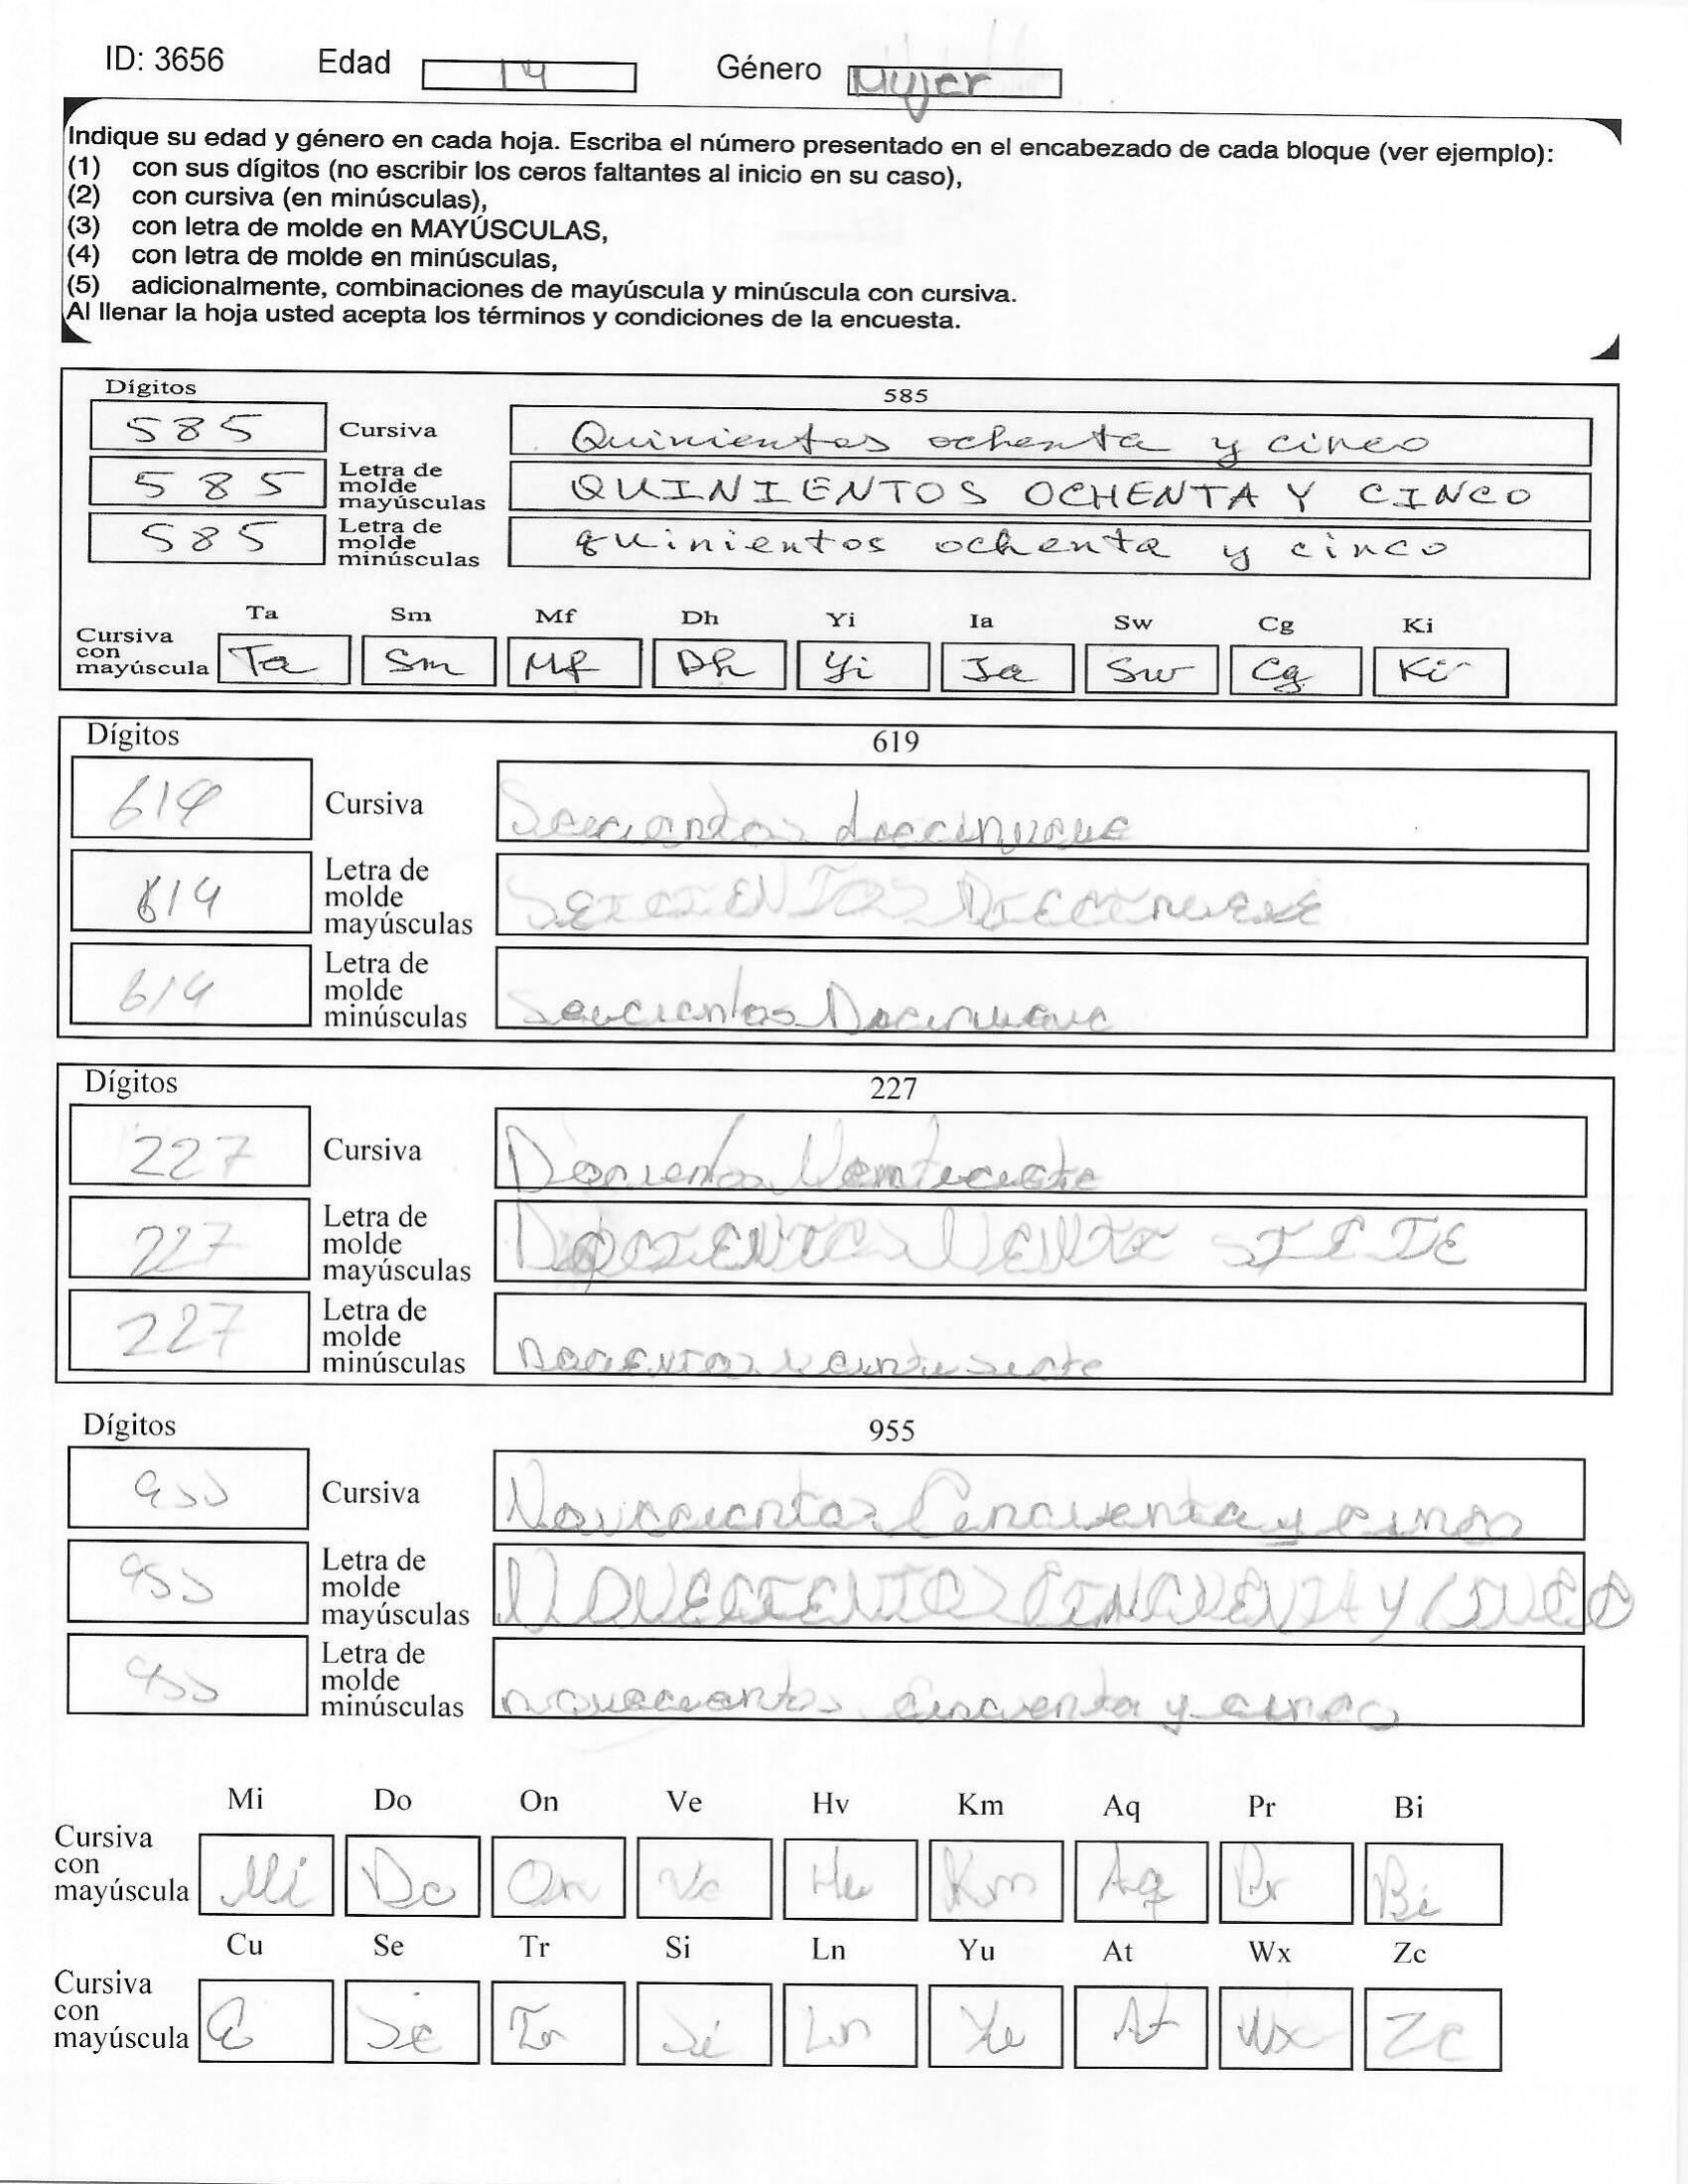 ID: 3656 Edad 14 Género Mujer
Indique su edad y género en cada hoja. Escriba el número presentado en el encabezado de cada bloque (ver ejemplo):
(1) con sus dígitos (no escribir los ceros faltantes al inicio en su caso),
(2) con cursiva (en minúsculas),
(3) con letra de molde en MAYÚSCULAS,
(4) con letra de molde en minúsculas,
(5) adicionalmente, combinaciones de mayúscula y minúscula con cursiva.
Al llenar la hoja usted acepta los términos y condiciones de la encuesta.
Dígitos 585
585 Cursiva Quinientos ochenta y cinco
585 Letra de molde mayúsculas QUINIENTOS OCHENTA Y CINCO
585 Letra de molde minúsculas quinientos ochenta y cinco
Ta Sm Mf Dh Yi Ia Sw Cg Ki
Cursiva con mayúscula Ta Sm Mf Dh Yi Ia Sw Cg Ki
Dígitos 619
619 Cursiva
619 Letra de molde mayúsculas SEICIENTOS
619 Letra de molde minúsculas Seicientos
Dígitos 227
227 Cursiva Docientos
227 Letra de molde mayúsculas
227 Letra de molde minúsculas
Dígitos 955
955 Cursiva Novecientos Cincuenta y cinco
955 Letra de molde mayúsculas NOVECIENTOS CINCUENTA Y CINCO
955 Letra de molde minúsculas novecientos cincuenta y cinco
Mi Do On Ve Hv Km Aq Pr Bi
Cursiva con mayúscula Mi Do On Ve Hv Km Aq Pr Bi
Cu Se Tr Si Ln Yu At Wx Zc
Cursiva con mayúscula Se Tr Si Ln Yu At Wx Zc